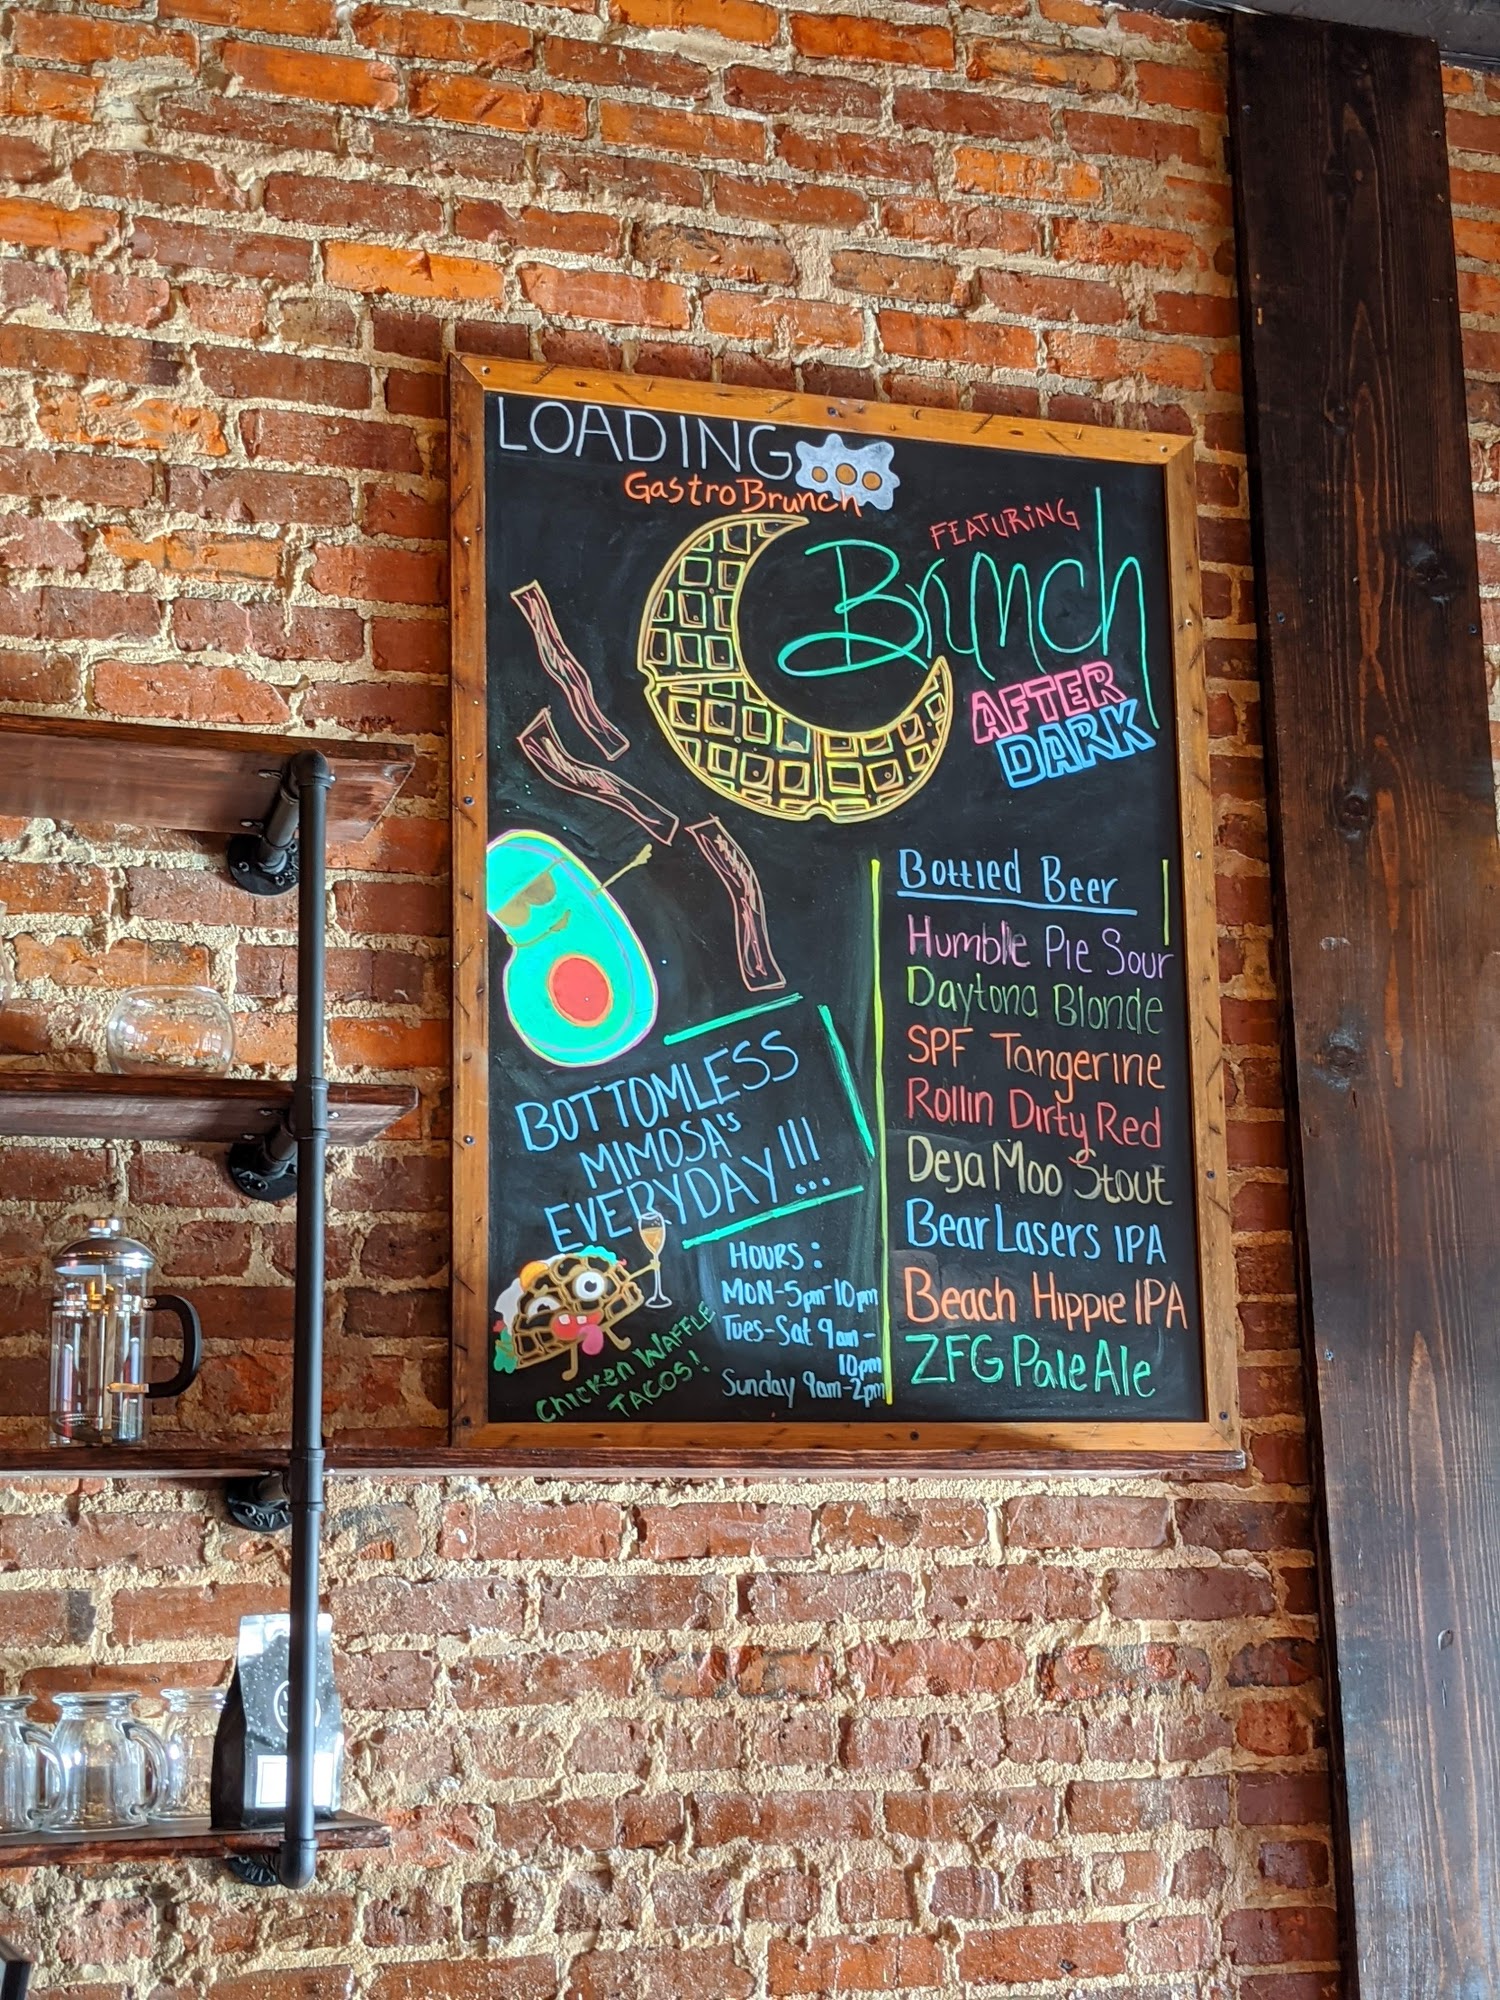 LOADING
GastroBrunch
FEATURING
Brunch
AFTER
DARK
BOTTOMLESS
MIMOSA's
EVERYDAY!!!...
Chicken WAFFLE
TACOS!
HOURS:
MON-5pm-10pm
Tues-Sat 9am-
10pm
Sunday 9am-2pm
Bottled Beer
Humble Pie Sour
Daytona Blonde
SPF Tangerine
Rollin Dirty Red
Deja Moo Stout
Bear Lasers IPA
Beach Hippie IPA
ZFG Pale Ale